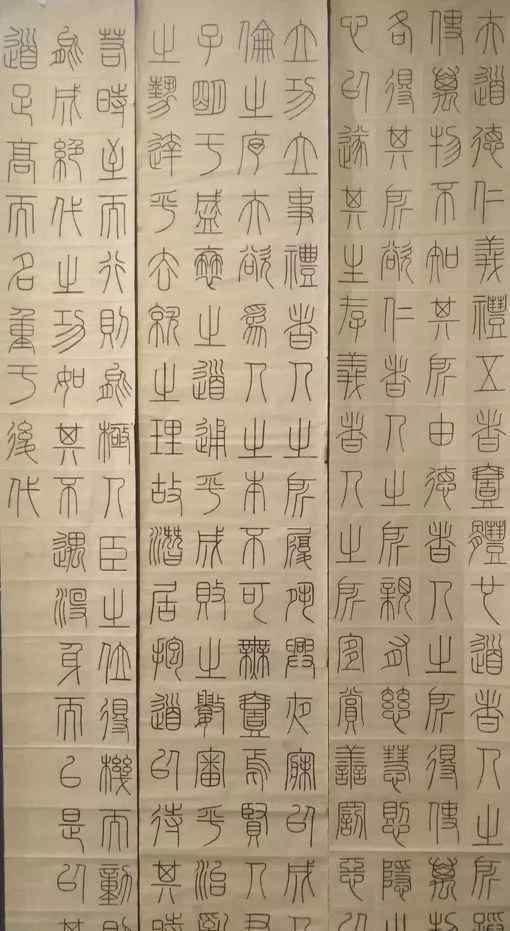 夫道德仁義禮五者壹體也道者人之所蹈
使萬物不知其所由德者人之所得使萬物
各得其所欲仁者人之所親有慈慧惻隱之
心以遂其生存義者人之所宜賞善罰惡以
立功立事禮者人之所履夙興夜寐以成人
倫之序夫欲爲人之本不可無壹焉賢人君
子明于盛衰之道通乎成敗之數審乎治亂
之勢達乎去就之理故潛居抱道以待其時
若時至而行則能極人臣之位得機而動則
能成絕代之功如其不遇沒身而已是以其
道足高而名重于後代